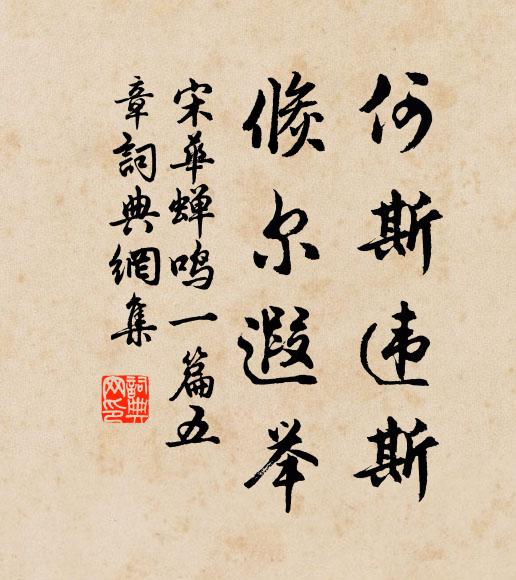 何斯违斯
倏尔遐举
宋華蝉鸣一篇五
章詞典網集
詞典网印